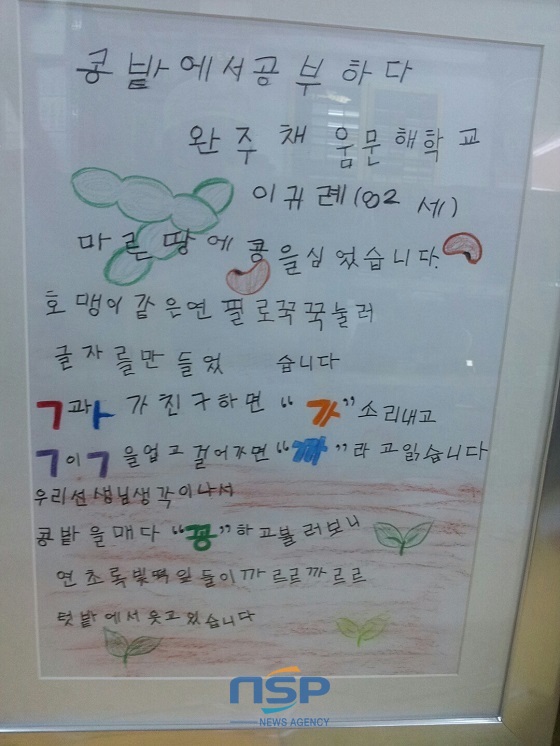 콩 밭에서 공부하다
완주 채움문해학교
이귀례(82세)
마른 땅에 콩을 심었습니다.
호맹이 같은 연필로 꾹꾹 눌러
글자를 만들었 습니다
ㄱ과ㅏ가 친구하면 “가” 소리내고
ㄱ이ㄱ을 업고 걸어가면 “까”라고 읽습니다
우리 선생님 생각이 나서
콩밭을 매다 “콩”하고 불러보니
연초록빛 떡잎들이 까르르 까르르
텃밭에서 웃고 있습니다
NSP
NEWS AGENCY